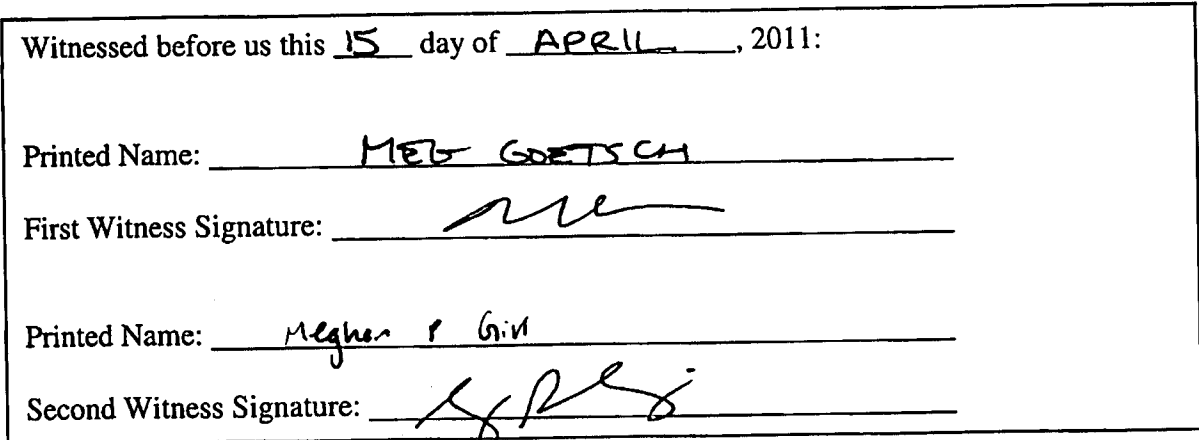 Witnessed before us this 15 day of APRIL, 2011:
Printed Name: MEG GOETSCH
First Witness Signature:
Printed Name: Meghan P
Second Witness Signature: